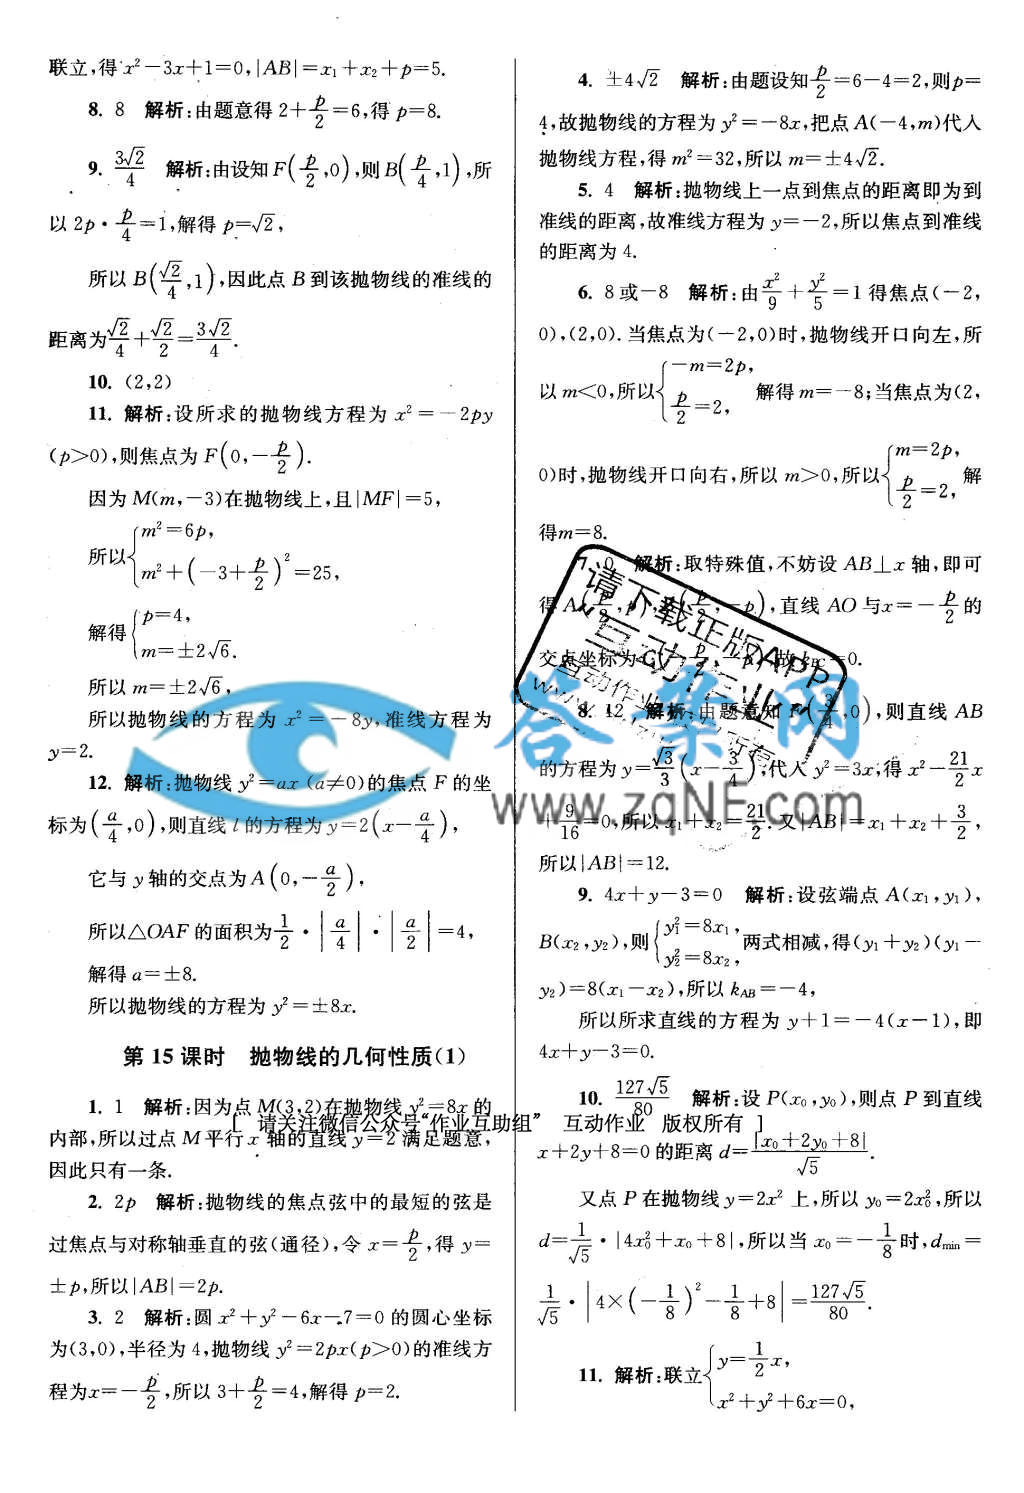 联立,得 x²-3x+1=0,|AB|=x₁+x₂+p=5.
8. 8 解析:由题意得 2+p/2=6,得 p=8.
9. 3√2/4 解析:由设知 F(p/2,0),则 B(p/4,1),所
以 2p·p/4=1,解得 p=√2,
所以 B(√2/4,1),因此点 B 到该抛物线的准线的
距离为√2/4+√2/2=3√2/4.
10. (2,2)
11. 解析:设所求的抛物线方程为 x²=-2py
(p>0),则焦点为 F(0,-p/2).
因为 M(m,-3)在抛物线上,且|MF|=5,
所以{m²=6p,
m²+(-3+p/2)²=25,
解得{p=4,
m=±2√6.
所以 m=±2√6,
所以抛物线的方程为 x²=-8y,准线方程为
y=2.
12. 解析:抛物线 y²=ax (a≠0)的焦点 F 的坐
标为(a/4,0),则直线 l 的方程为 y=2(x-a/4),
它与 y 轴的交点为 A(0,-a/2),
所以△OAF 的面积为1/2·|a/4|·|a/2|=4,
解得 a=±8.
所以抛物线的方程为 y²=±8x.
第 15 课时 抛物线的几何性质(1)
1. 1 解析:因为点 M(3,2)在抛物线 y²=8x 的
内部,所以过点 M 平行 x 轴的直线 y=2 满足题意,
因此只有一条.
2. 2p 解析:抛物线的焦点弦中的最短的弦是
过焦点与对称轴垂直的弦(通径),令 x=p/2,得 y=
±p,所以|AB|=2p.
3. 2 解析:圆 x²+y²-6x-7=0 的圆心坐标
为(3,0),半径为 4,抛物线 y²=2px(p>0)的准线方
程为x=-p/2,所以 3+p/2=4,解得 p=2.
4. ±4√2 解析:由题设知p/2=6-4=2,则p=
4,故抛物线的方程为 y²=-8x,把点 A(-4,m)代入
抛物线方程,得 m²=32,所以 m=±4√2.
5. 4 解析:抛物线上一点到焦点的距离即为到
准线的距离,故准线方程为 y=-2,所以焦点到准线
的距离为 4.
6. 8或-8 解析:由x²/9+y²/5=1得焦点(-2,
0),(2,0).当焦点为(-2,0)时,抛物线开口向左,所
以 m<0,所以{-m=2p,
p/2=2, 解得 m=-8;当焦点为(2,
0)时,抛物线开口向右,所以 m>0,所以{m=2p,
p/2=2, 解
得m=8.
7. 0 解析:取特殊值,不妨设 AB⊥x 轴,即可
得 A(p/2,p), (p/2,-p),直线 AO 与x=-p/2的
交点坐标为 C 故 k =0.
8. 12 解析:由题意知 F(3/4,0),则直线 AB
的方程为 y=√3/3(x-3/4),代入 y²=3x,得 x²-21/2x
+9/16=0,所以 x₁+x₂=21/2.又|AB|=x₁+x₂+3/2,
所以|AB|=12.
9. 4x+y-3=0 解析:设弦端点 A(x₁,y₁),
B(x₂,y₂),则{y₁²=8x₁,
y₂²=8x₂, 两式相减,得(y₁+y₂)(y₁-
y₂)=8(x₁-x₂),所以 kAB=-4,
所以所求直线的方程为 y+1=-4(x-1),即
4x+y-3=0.
10. 127√5/80 解析:设 P(x₀,y₀),则点 P 到直线
x+2y+8=0 的距离 d=|x₀+2y₀+8|/√5.
又点 P 在抛物线 y=2x² 上,所以 y₀=2x₀²,所以
d=1/√5·|4x₀²+x₀+8|,所以当 x₀=-1/8时,dmin=
1/√5·|4×(-1/8)²-1/8+8|=127√5/80.
11. 解析:联立{y=1/2x,
x²+y²+6x=0,
请下载正版APP
"互动作业"
答案网
www.zqNF.com
[ 请关注微信公众号“作业互助组” 互动作业 版权所有 ]